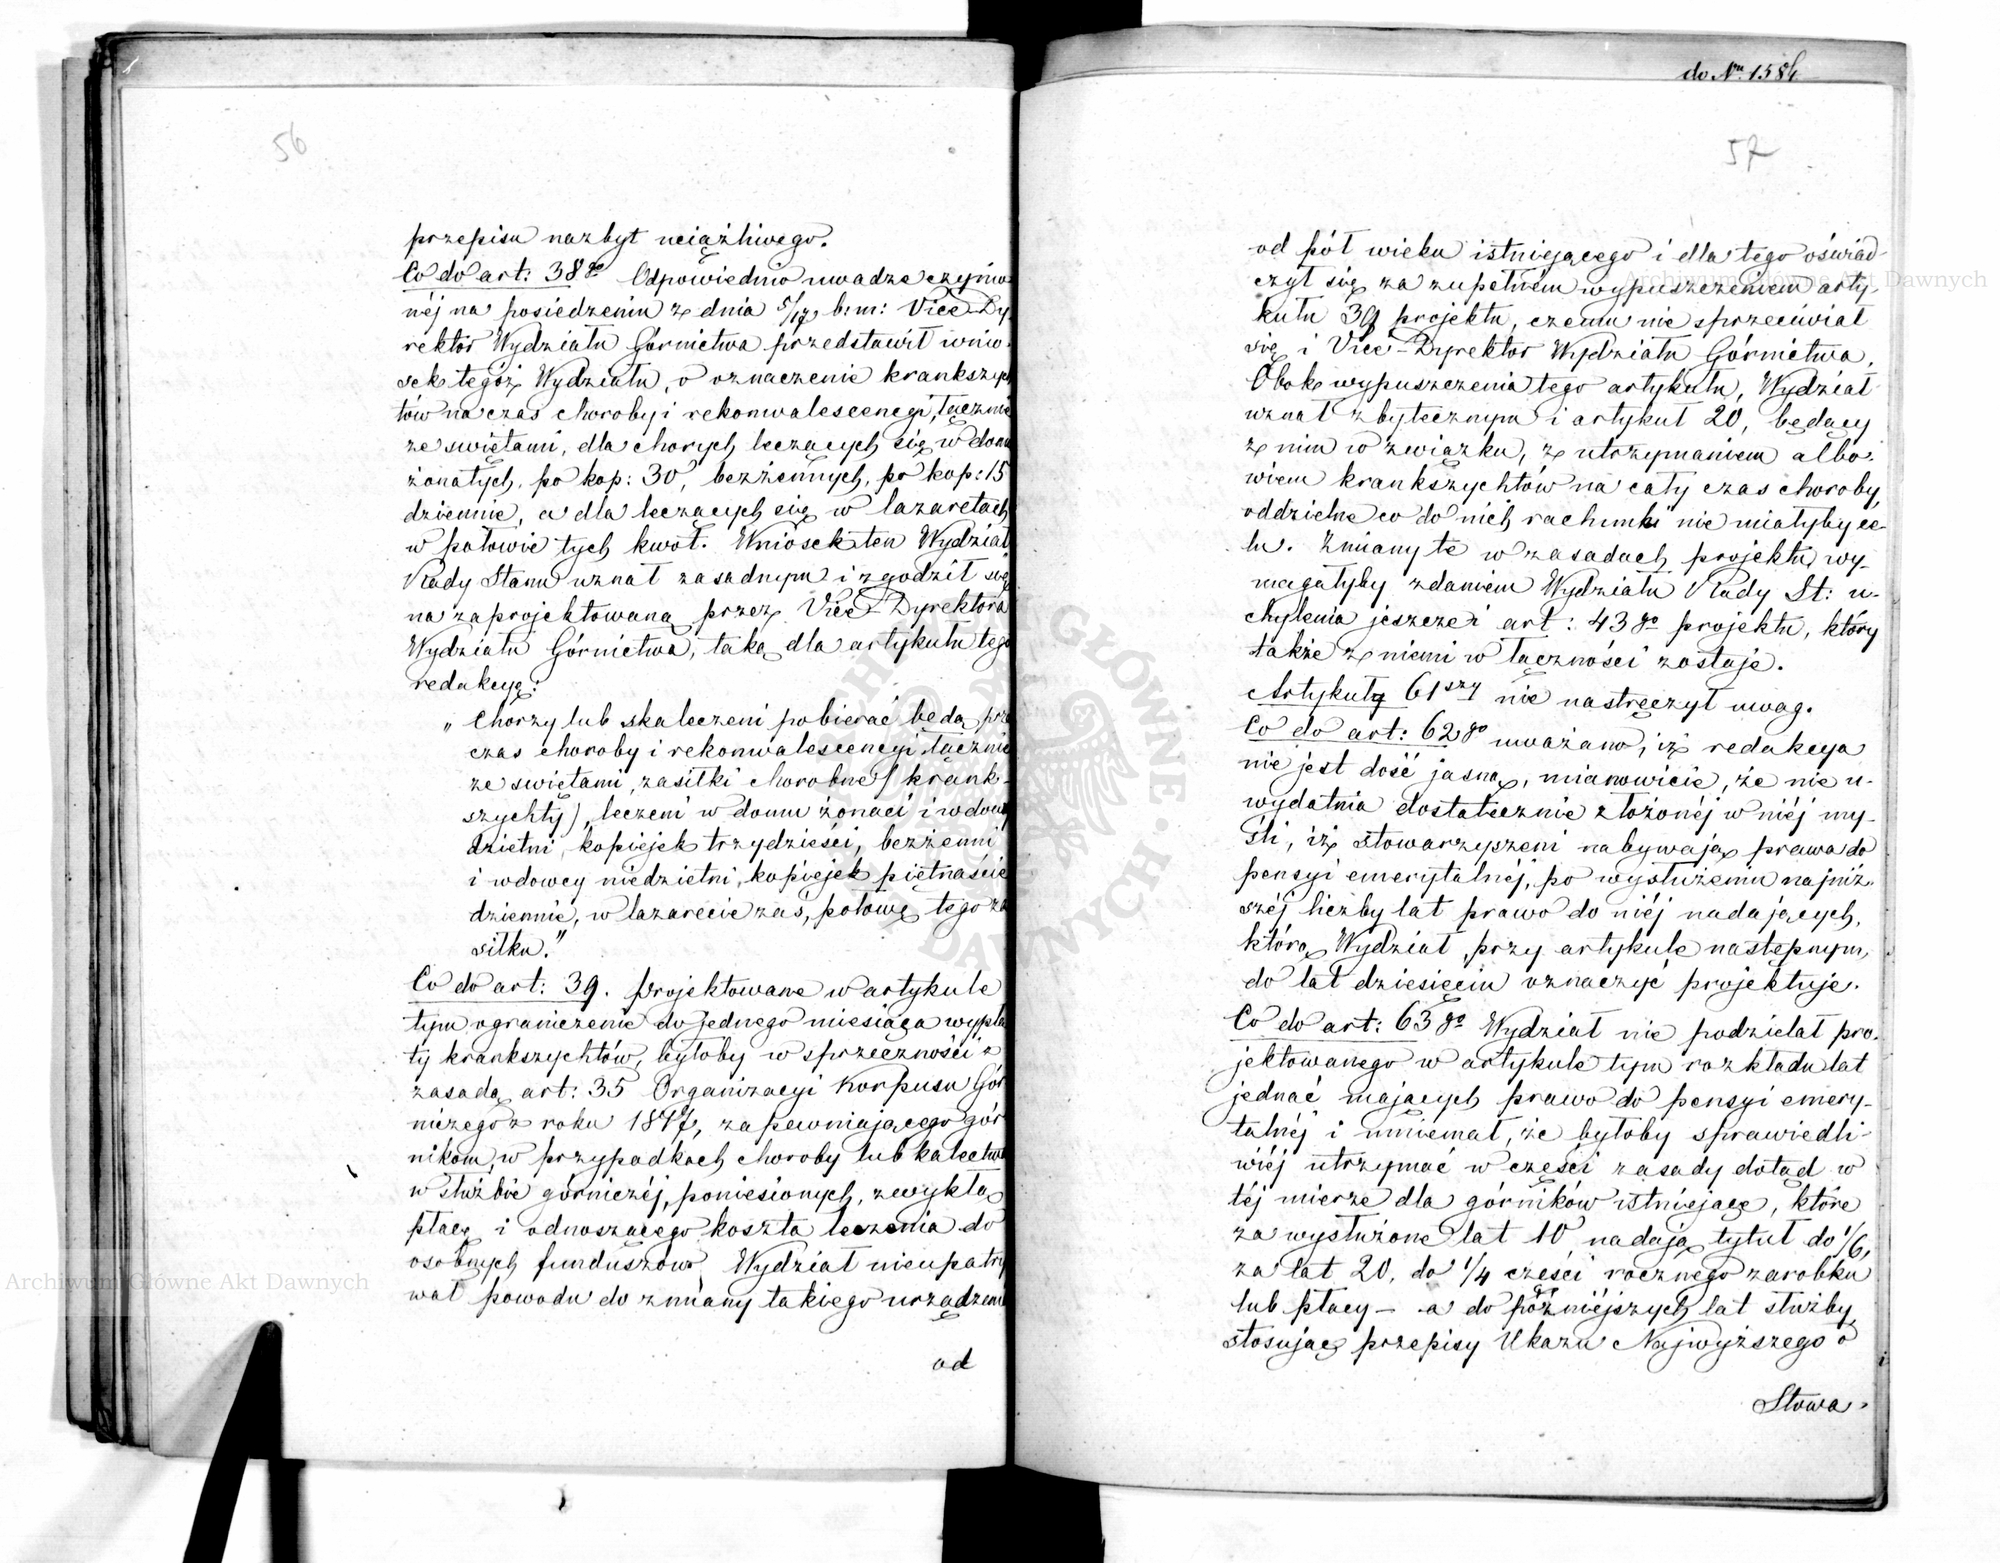 56
przepisu nazbyt uciążliwego.
Co do art: 38go Odpowiednio uwadze czynio-
néj na posiedzeniu z dnia 5/17 b: m: Vice-Dy-
rektor Wydziału Górnictwa przedstawił wnio-
sek tegoż Wydziału, o oznaczenie krankszych
tów na czas choroby i rekonwalescencyi, łącznie
ze swiętami, dla chorych leczących się w domu
żonatych, po kop: 30, bezżennych, po kop: 15
dziennie, a dla leczących się w lazaretach
w połowie tych kwot. Wniosek ten Wydział
Rady Stanu uznał zasadnym i zgodził się
na zaprojektowaną przez Vice-Dyrektora
Wydziału Górnictwa, taką dla artykułu tego
redakcyę:
„Chorzy lub skaleczeni pobierać będą prze
czas choroby i rekonwalescencyi łącznie
ze swiętami, zasiłki chorobne (krank-
szychty), leczeni w domu żonaci i wdowcy
dzietni, kopiejek trzydzieści, bezżenni
i wdowcy niedzietni, kopiejek piętnaście
dziennie, w lazarecie zaś, połowę tego za
siłku."
Co do art: 39. Projektowane w artykule
tym ograniczenie do jednego miesiąca wypła
ty krankszychtów, byłoby w sprzeczności z
zasadą art: 35 Organizacyi Korpusu Gór
niczego z roku 1817, zapewniającego gór
nikom, w przypadkach choroby lub kalectwa
w służbie górniczéj, poniesionych, zwykłą
płacę i odnoszącego koszta leczenia do
osobnych funduszów. Wydział nieupatry
wał powodu do zmiany takiego urządzenia
od
do Nru 1584
57
od pół wieku istniejącego i dla tego oświad-
czył się za zupełném wypuszczeniem arty-
kułu 39 projektu, czemu nie sprzeciwiał
się i Vice-Dyrektor Wydziału Górnictwa.
Obok wypuszczenia tego artykułu, Wydział
uznał zbytecznym i artykuł 20, będący
z nim w związku, z utrzymaniem albo-
wiem krankszychtów na cały czas choroby,
oddzielne co do nich rachunki nie miałyby ce-
lu. Zmiany te w zasadach projektu wy-
magałyby zdaniem Wydziału Rady St: u-
chylenia jeszcze i art: 43go projektu, który
także z niemi w łączności zostaje.
Artykuł 61szy nie nastręczył uwag.
Co do art: 62go uważano, iż redakcya
nie jest dość jasną, mianowicie, że nie u-
wydatnia dostatecznie złożonéj w niéj my-
śli, iż stowarzyszeni nabywają prawa do
pensyi emerytalnéj, po wysłużeniu najniż-
széj liczby lat prawo do niéj nadających,
którą Wydział, przy artykule następnym,
do lat dziesięciu oznaczyć projektuje.
Co do art: 63go Wydział nie podzielał pro-
jektowanego w artykule tym rozkładu lat
jednać mających prawo do pensyi emery-
talnéj i mniemał, że byłoby sprawiedli-
wiéj utrzymać w części zasady dotąd w
téj mierze dla górników istniejące, które
za wysłużone lat 10 nadają tytuł do 1/6,
za lat 20, do 1/4 części rocznego zarobku
lub płacy – a do późniejszych lat służby,
stosując przepisy Ukazu Najwyższego o
Stowa-
Archiwum Główne Akt Dawnych
Archiwum Główne Akt Dawnych